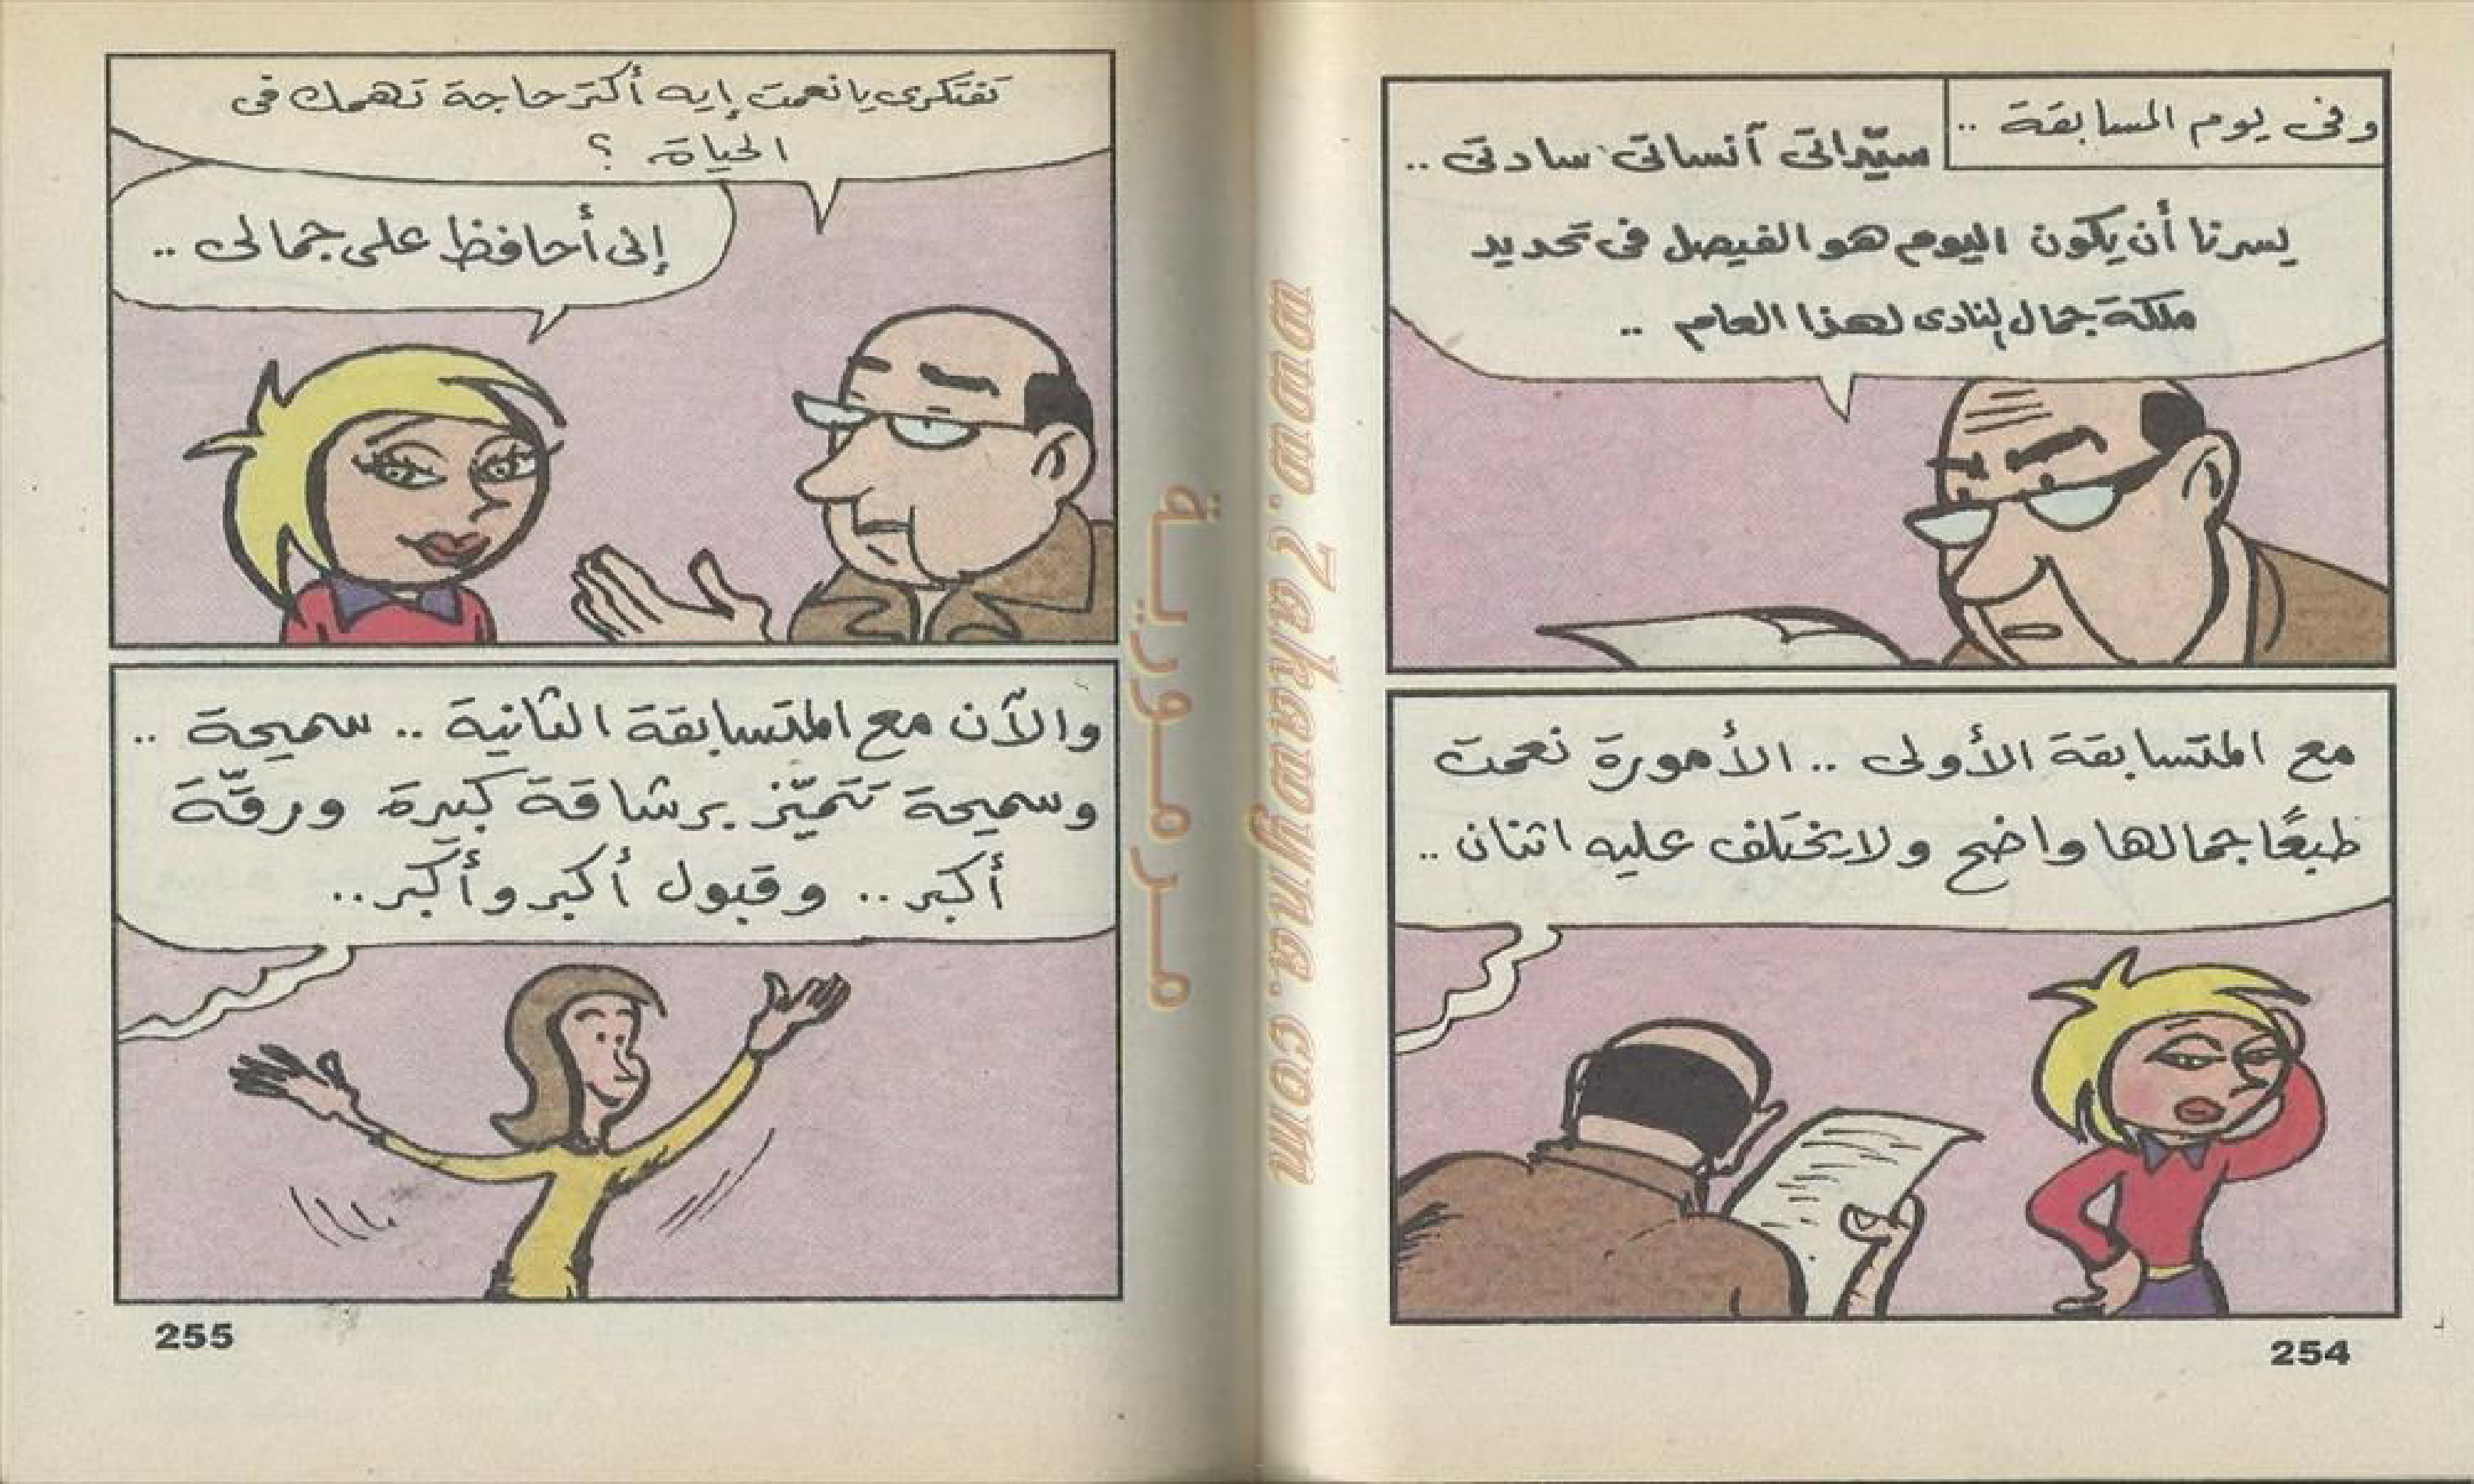 وفى يوم المسابقة ..
سيّداتى آنساتى سادتى ..
يسرنا أن يكون اليوم هو الفيصل فى تحديد
ملكة جمال النادى لهذا العام ..
مع المتسابقة الأولى .. الأمورة نعمت
طبعًا جمالها واضح ولا يختلف عليه اثنان ..
254
تفتكرى يا نعمت إيه أكتر حاجة تهمك فى
الحياة ؟
إنى أحافظ على جمالى ..
والآن مع المتسابقة الثانية .. سميحة ..
وسميحة تتميّز برشاقة كبيرة ورقّة
أكبر .. وقبول أكبر وأكبر ..
255
www.Zakawyna.com
مرمورية